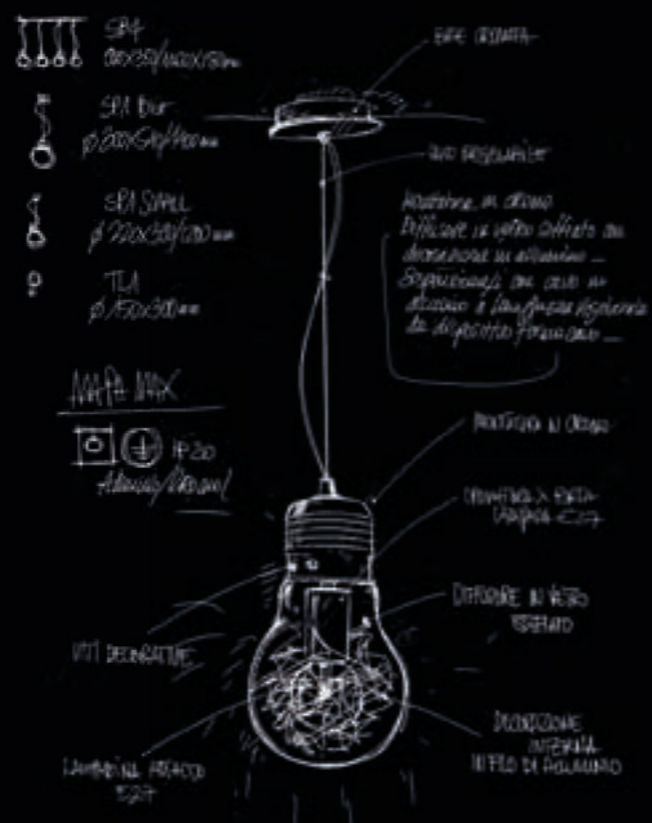 SP4
SP1 BIG
SP1 SMALL
Ø 220X390/1200 mm
TL1
Ø 150X300 mm
MAPA MAX
IP20
BASE CROMATA
CAVO REGOLABILE
Montatura in cromo
Diffusore in vetro soffiato con
decorazione in alluminio
Sospensioni con cavo in
acciaio a lunghezza regolabile
da dispositivo fermacavo
MONTATURA IN CROMO
E27
DIFFUSORE IN VETRO
SOFFIATO
VITI DECORATIVE
DECORAZIONE
INTERNA
IN FILO DI ALLUMINIO
LAMPADINA ATTACCO
E27